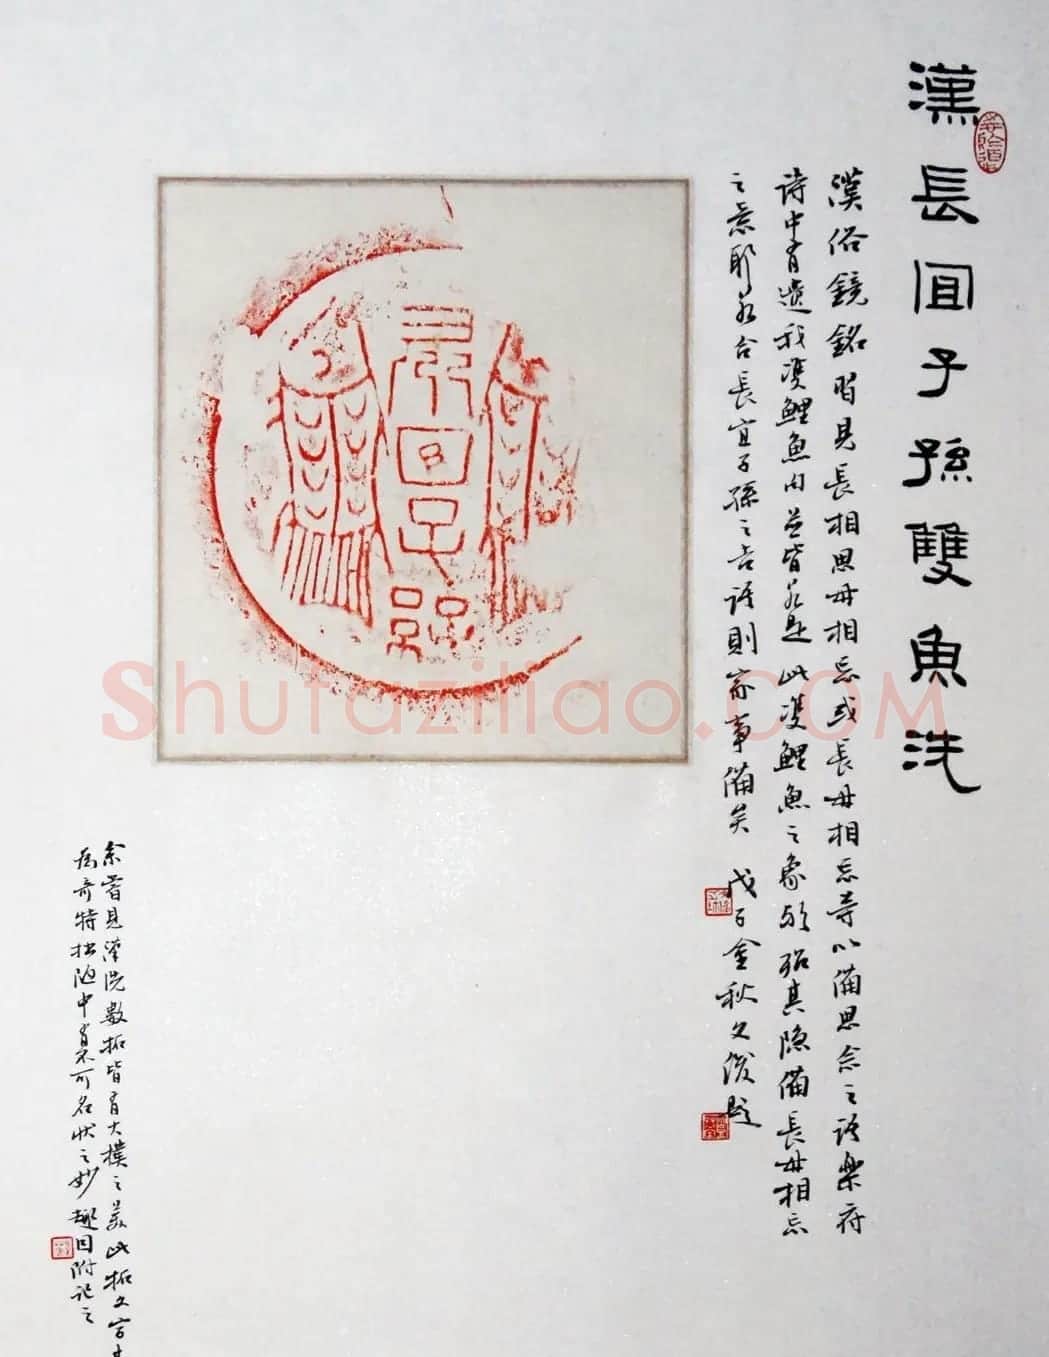 漢長宜子孫雙魚洗
漢俗鏡銘習見長相思毋相忘或長毋相忘等以備思念之語樂府
詩中有遺我雙鯉魚內並皆若是此雙鯉魚之象頗殆其隱備長毋相忘
之意耶若合長宜子孫之吉語則家事備矣 戊子金秋文俊題
長宜子孫
余嘗見漢洗數拓皆有大樸之美此拓文字尤
為奇特拙陋中有不可名狀之妙趣因附記之
Shufaziliao.com